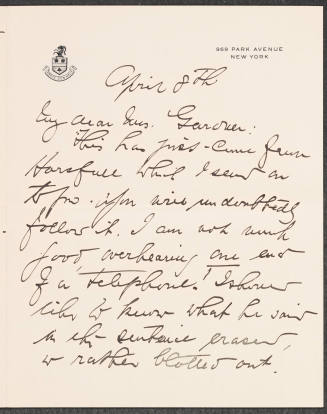 969 PARK AVENUE
NEW YORK
April 8th
My dear Mrs. Gardner:
This has just come from
Horsfall which I send on
to you. you will undoubtedly
follow it. I am not much
good overhearing one end
of a telephone! I should
like to know what he said
in the sentence erased,
or rather blotted out.